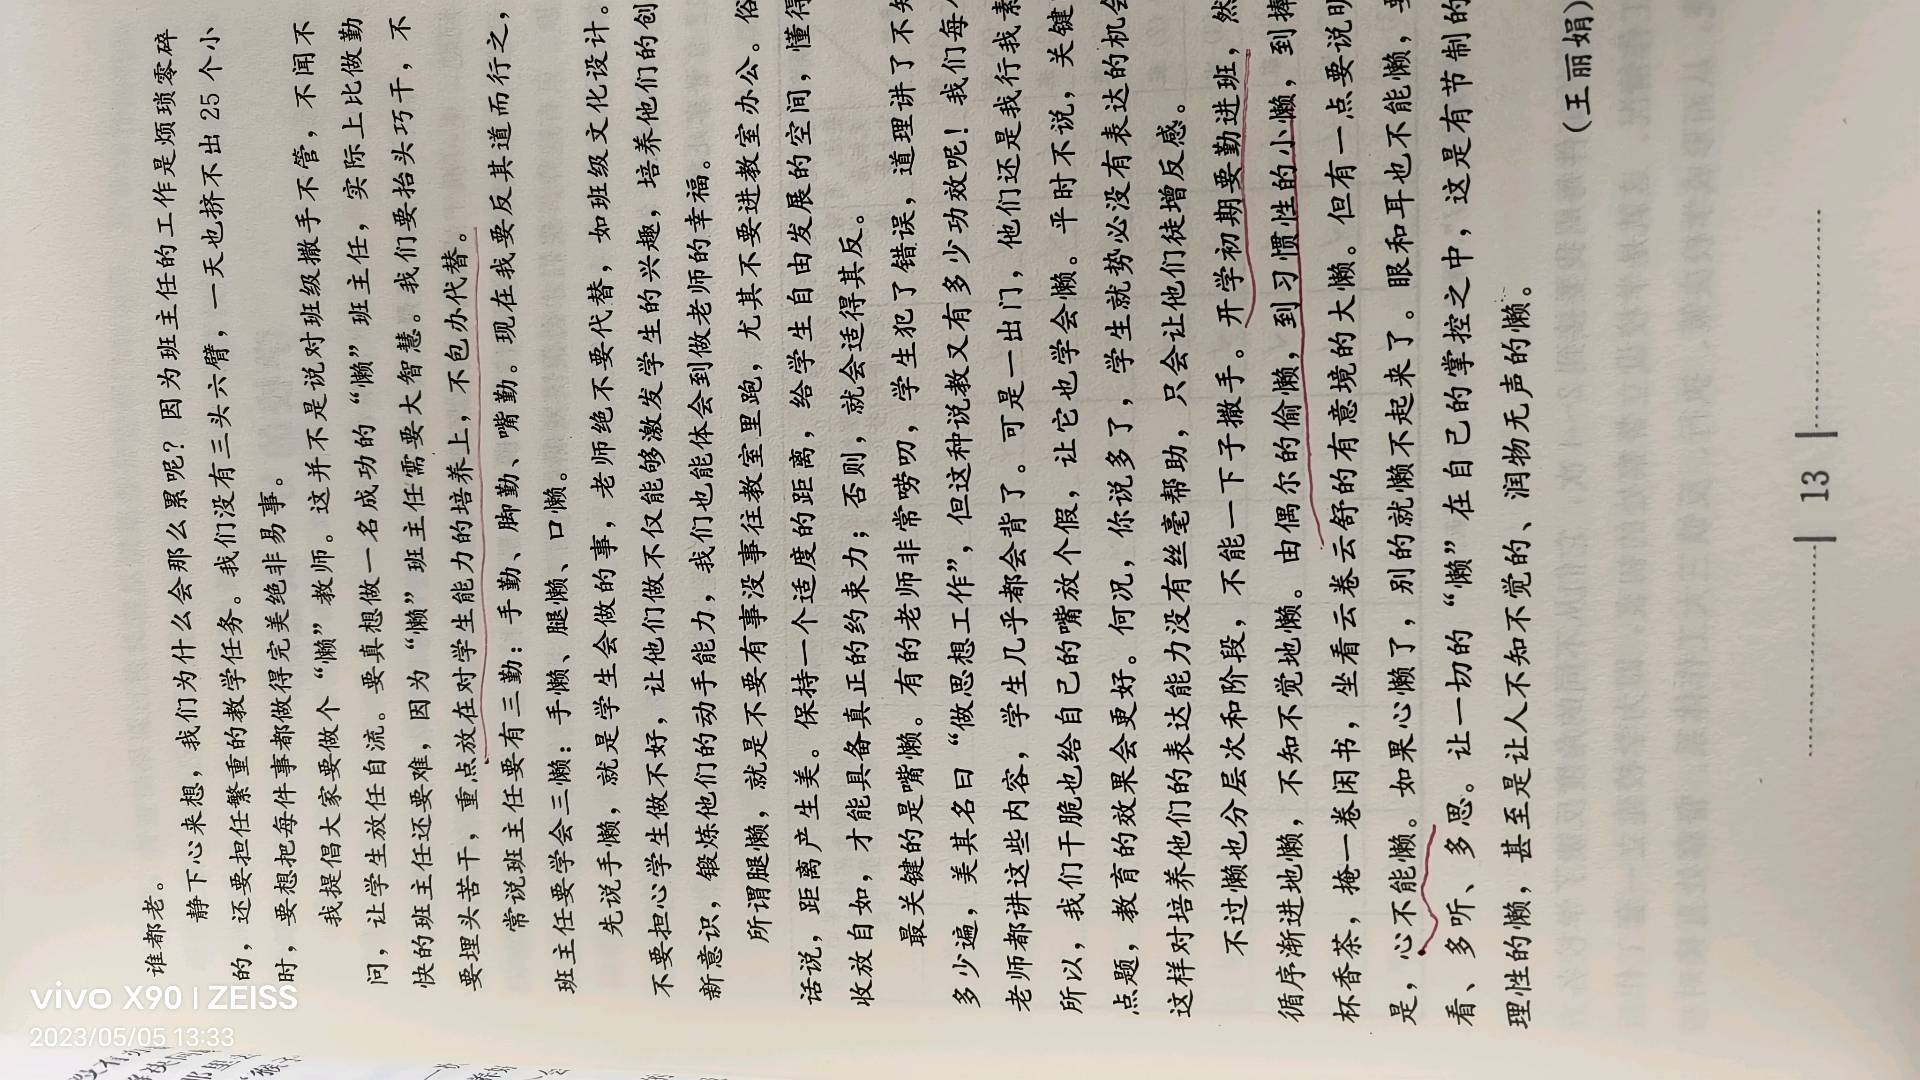 谁都老。
静下心来想，我们为什么会那么累呢？因为班主任的工作是烦琐零碎
的，还要担任繁重的教学任务。我们没有三头六臂，一天也挤不出 25 个小
时，要想把每件事都做得完美绝非易事。
我提倡大家要做个“懒”教师。这并不是说对班级撒手不管，不闻不
问，让学生放任自流。要真想做一名成功的“懒”班主任，实际上比做勤
快的班主任还要难，因为“懒”班主任需要大智慧。我们要抬头巧干，不
要埋头苦干，重点放在对学生能力的培养上，不包办代替。
常说班主任要有三勤：手勤、脚勤、嘴勤。现在我要反其道而行之，
班主任要学会三懒：手懒、腿懒、口懒。
先说手懒，就是学生会做的事，老师绝不要代替，如班级文化设计。
不要担心学生做不好，让他们做不仅能够激发学生的兴趣，培养他们的创
新意识，锻炼他们的动手能力，我们也能体会到做老师的幸福。
所谓腿懒，就是不要有事没事往教室里跑，尤其不要进教室办公。俗
话说，距离产生美。保持一个适度的距离，给学生自由发展的空间，懂得
收放自如，才能具备真正的约束力；否则，就会适得其反。
最关键的是嘴懒。有的老师非常唠叨，学生犯了错误，道理讲了不知
多少遍，美其名曰“做思想工作”，但这种说教又有多少功效呢！我们每
老师都讲这些内容，学生几乎都会背了。可是一出门，他们还是我行我素
所以，我们干脆也给自己的嘴放个假，让它也学会懒。平时不说，关键
点题，教育的效果会更好。何况，你说多了，学生就势必没有表达的机会
这样对培养他们的表达能力没有丝毫帮助，只会让他们徒增反感。
不过懒也分层次和阶段，不能一下子撒手。开学初期要勤进班，然
循序渐进地懒，不知不觉地懒。由偶尔的偷懒，到习惯性的小懒，到捧
杯香茶，掩一卷闲书，坐看云卷云舒的有意境的大懒。但有一点要说明
是，心不能懒。如果心懒了，别的就懒不起来了。眼和耳也不能懒，要
看、多听、多思。让一切的“懒”在自己的掌控之中，这是有节制的
理性的懒，甚至是让人不知不觉的、润物无声的懒。
（王丽娟）
13
vivo X90 | ZEISS
2023/05/05 13:33